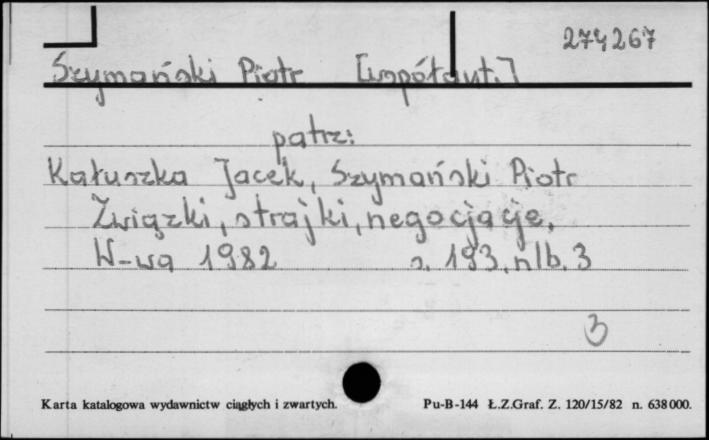 274267
Szymański Piotr [współaut.]
patrz:
Kałuszka Jacek, Szymański Piotr
Związki, strajki, negocjacje,
W-wa 1982 s. 193, nlb. 3
3
Karta katalogowa wydawnictw ciągłych i zwartych. Pu-B-144 Ł.Z.Graf. Z. 120/15/82 n. 638000.